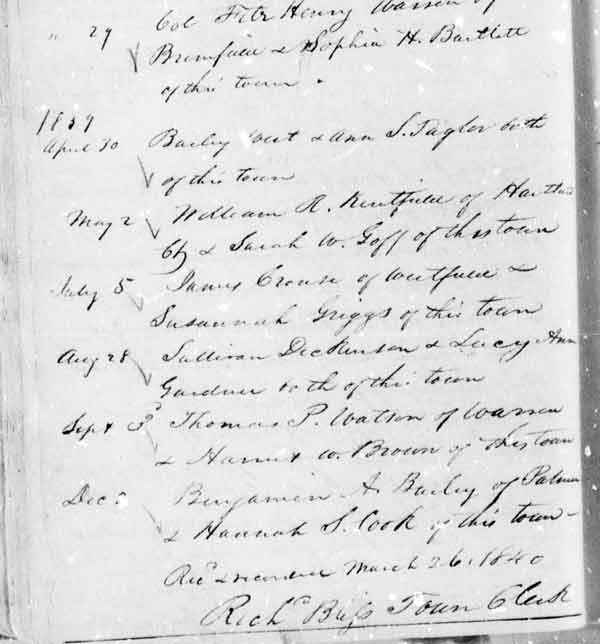 " 29 Col Fitz Henry Warren of
Brimfield & Sophia H. Bartlett
of this town.
1839
April 30 Bailey West & Ann S. Taylor both
of this town
May 2 William R. Kentfield of Hartford
Ct & Sarah W. Goff of this town
July 5 James Crouse of Westfield &
Susannah Griggs of this town
Aug 28 Sullivan Dickinson & Lucy Ann
Gardner both of this town
Sept 3d Thomas P. Watson of Warren
& Harriet W. Brown of this town
Dec Benjamin A. Bailey of Palmer
& Hannah S. Cook of this town
Recd & recorded March 26. 1840
Richd Town Clerk